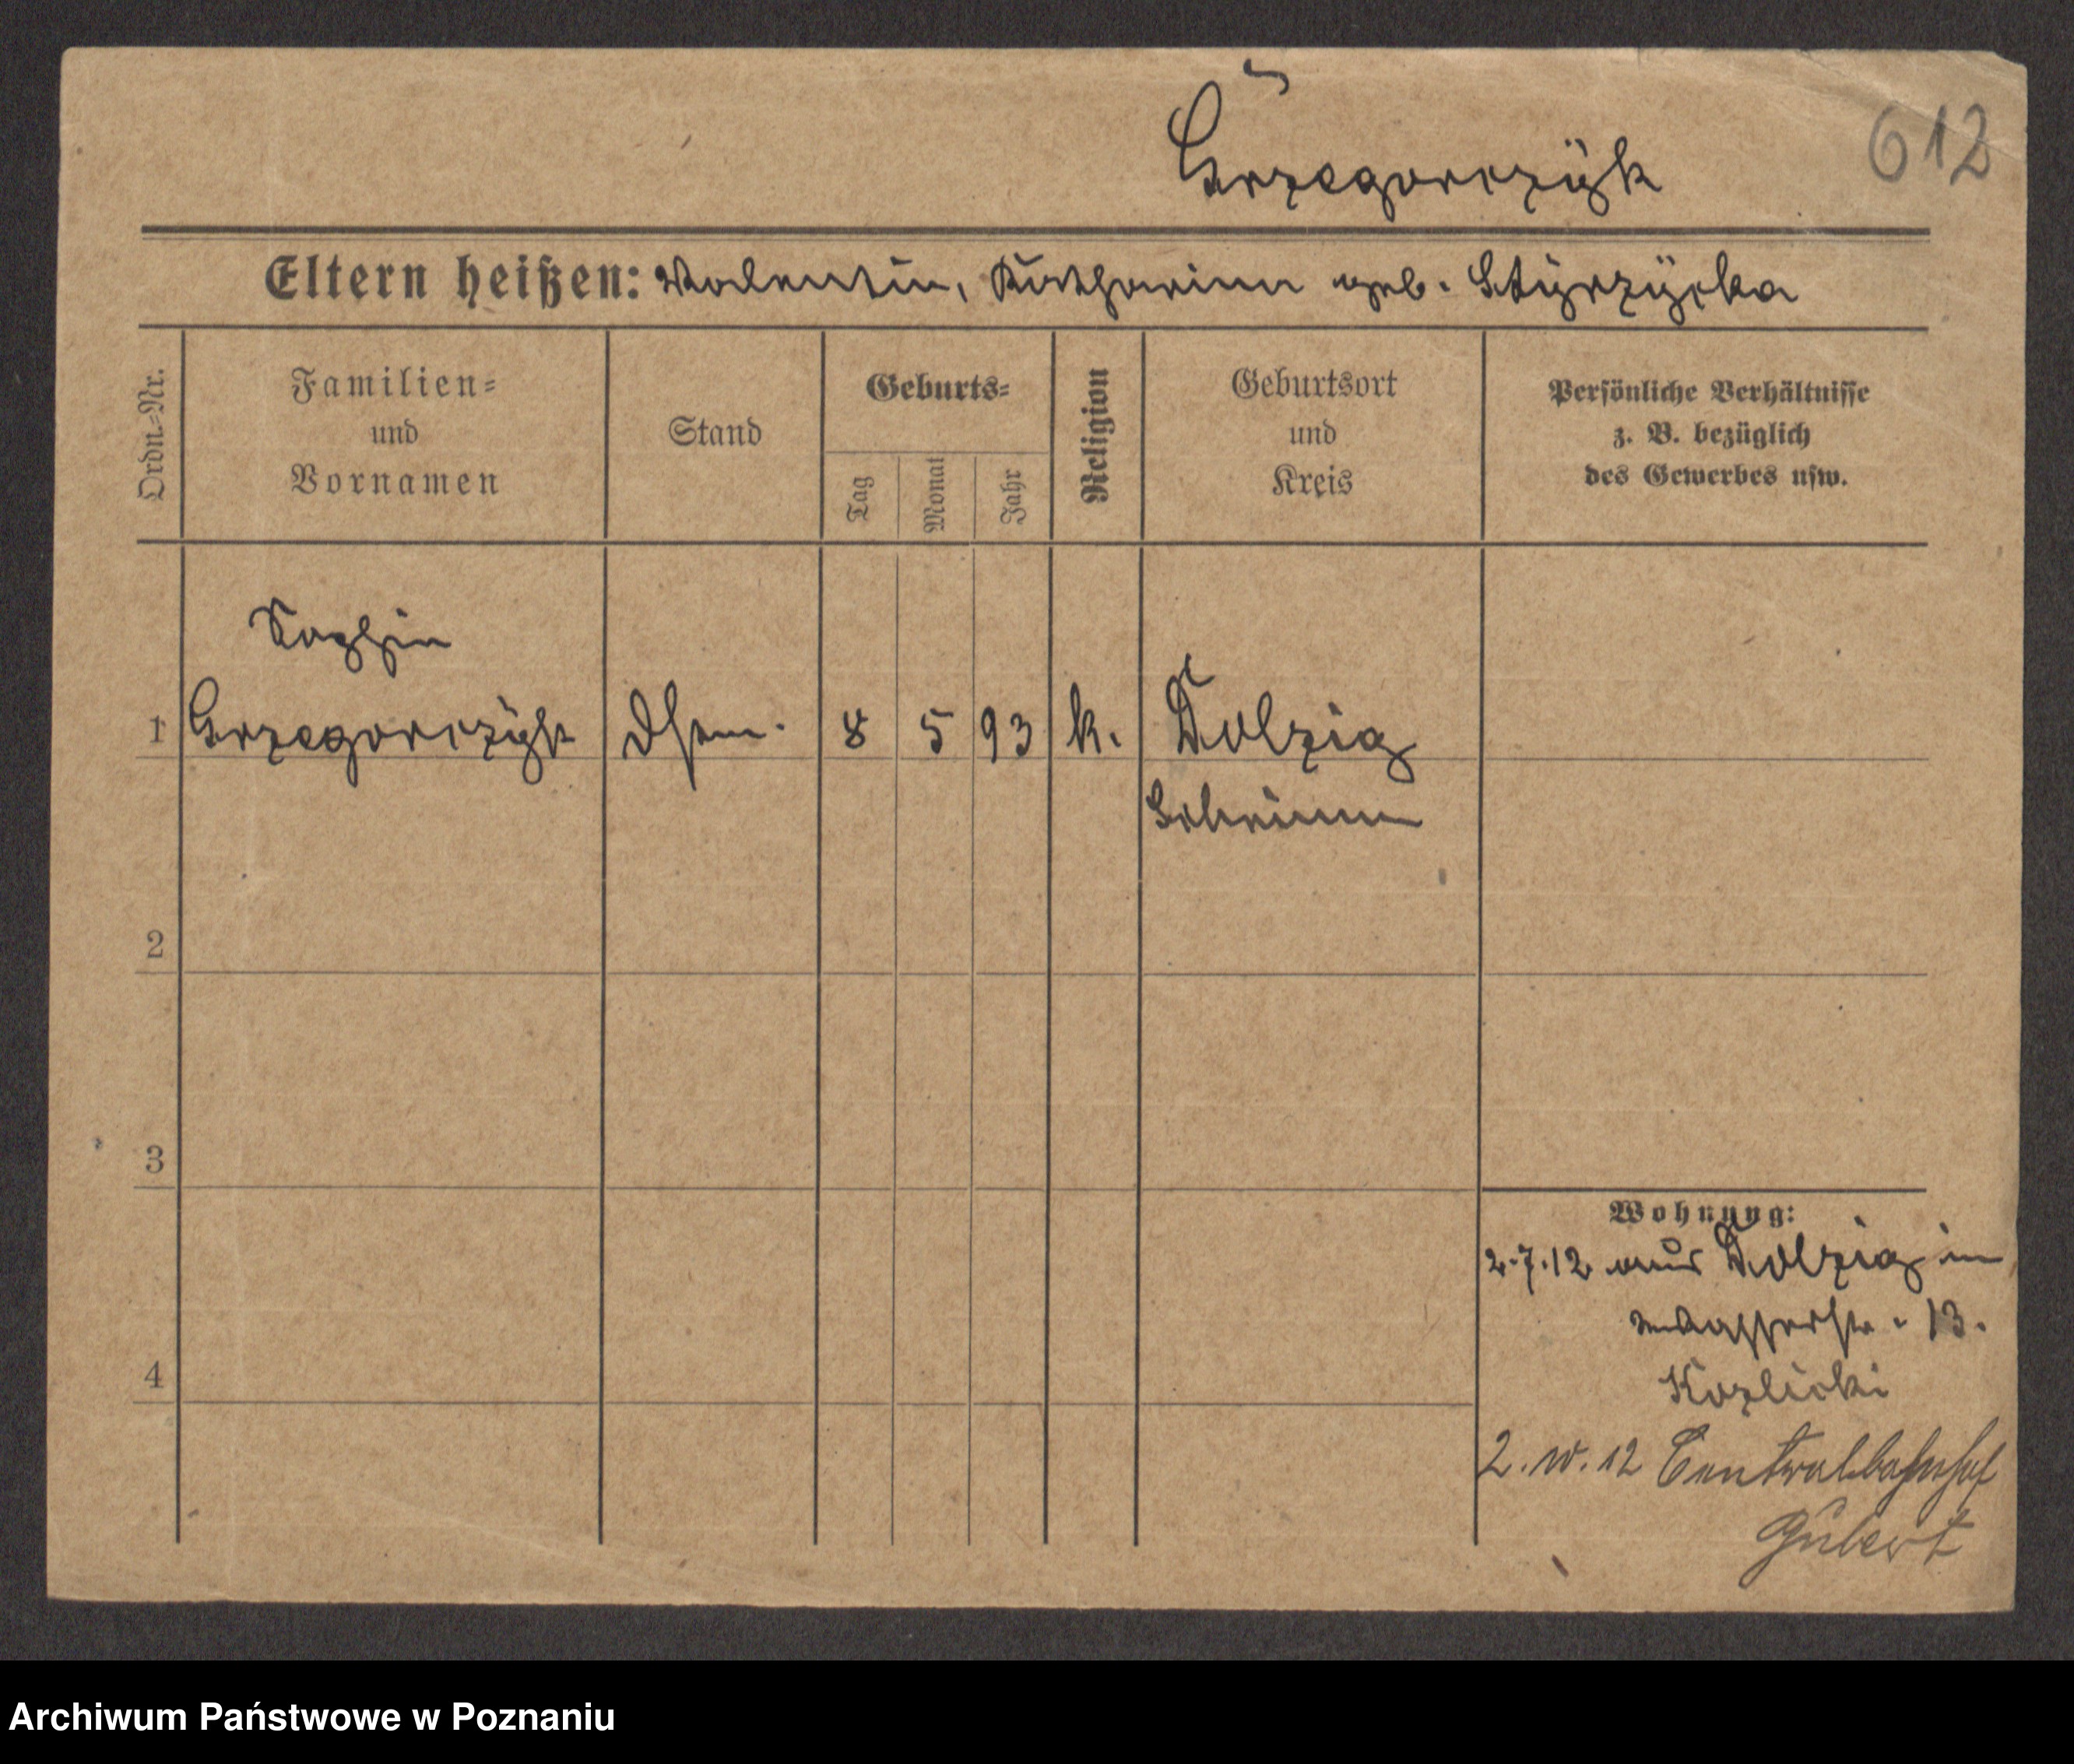 612
Grzegorczÿk
Eltern heißen: Valentin, Katharina geb. Stÿrzÿcka
Ordn.=Nr.
Familien=
und
Vornamen
Stand
Geburts=
Tag
Monat
Jahr
Religion
Geburtsort
und
Kreis
Persönliche Verhältnisse
z. B. bezüglich
des Gewerbes usw.
Sophia
1 Grzegorczÿk 8 5 93 k. Dolzig
Schrimm
2
3
4
Wohnung:
2.7.12 aus Dolzig in
Wasserstr. 13.
Kozlicki
2. 10. 12 Centralbahnhof
Archiwum Państwowe w Poznaniu